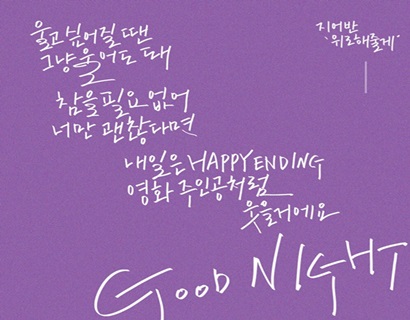 울고싶어질 땐
그냥 울어도 돼
참을 필요 없어
너만 괜찮다면
내일은 HAPPY ENDING
영화 주인공처럼
웃을거에요
GOOD NIGHT
지어반
'위로해줄게'